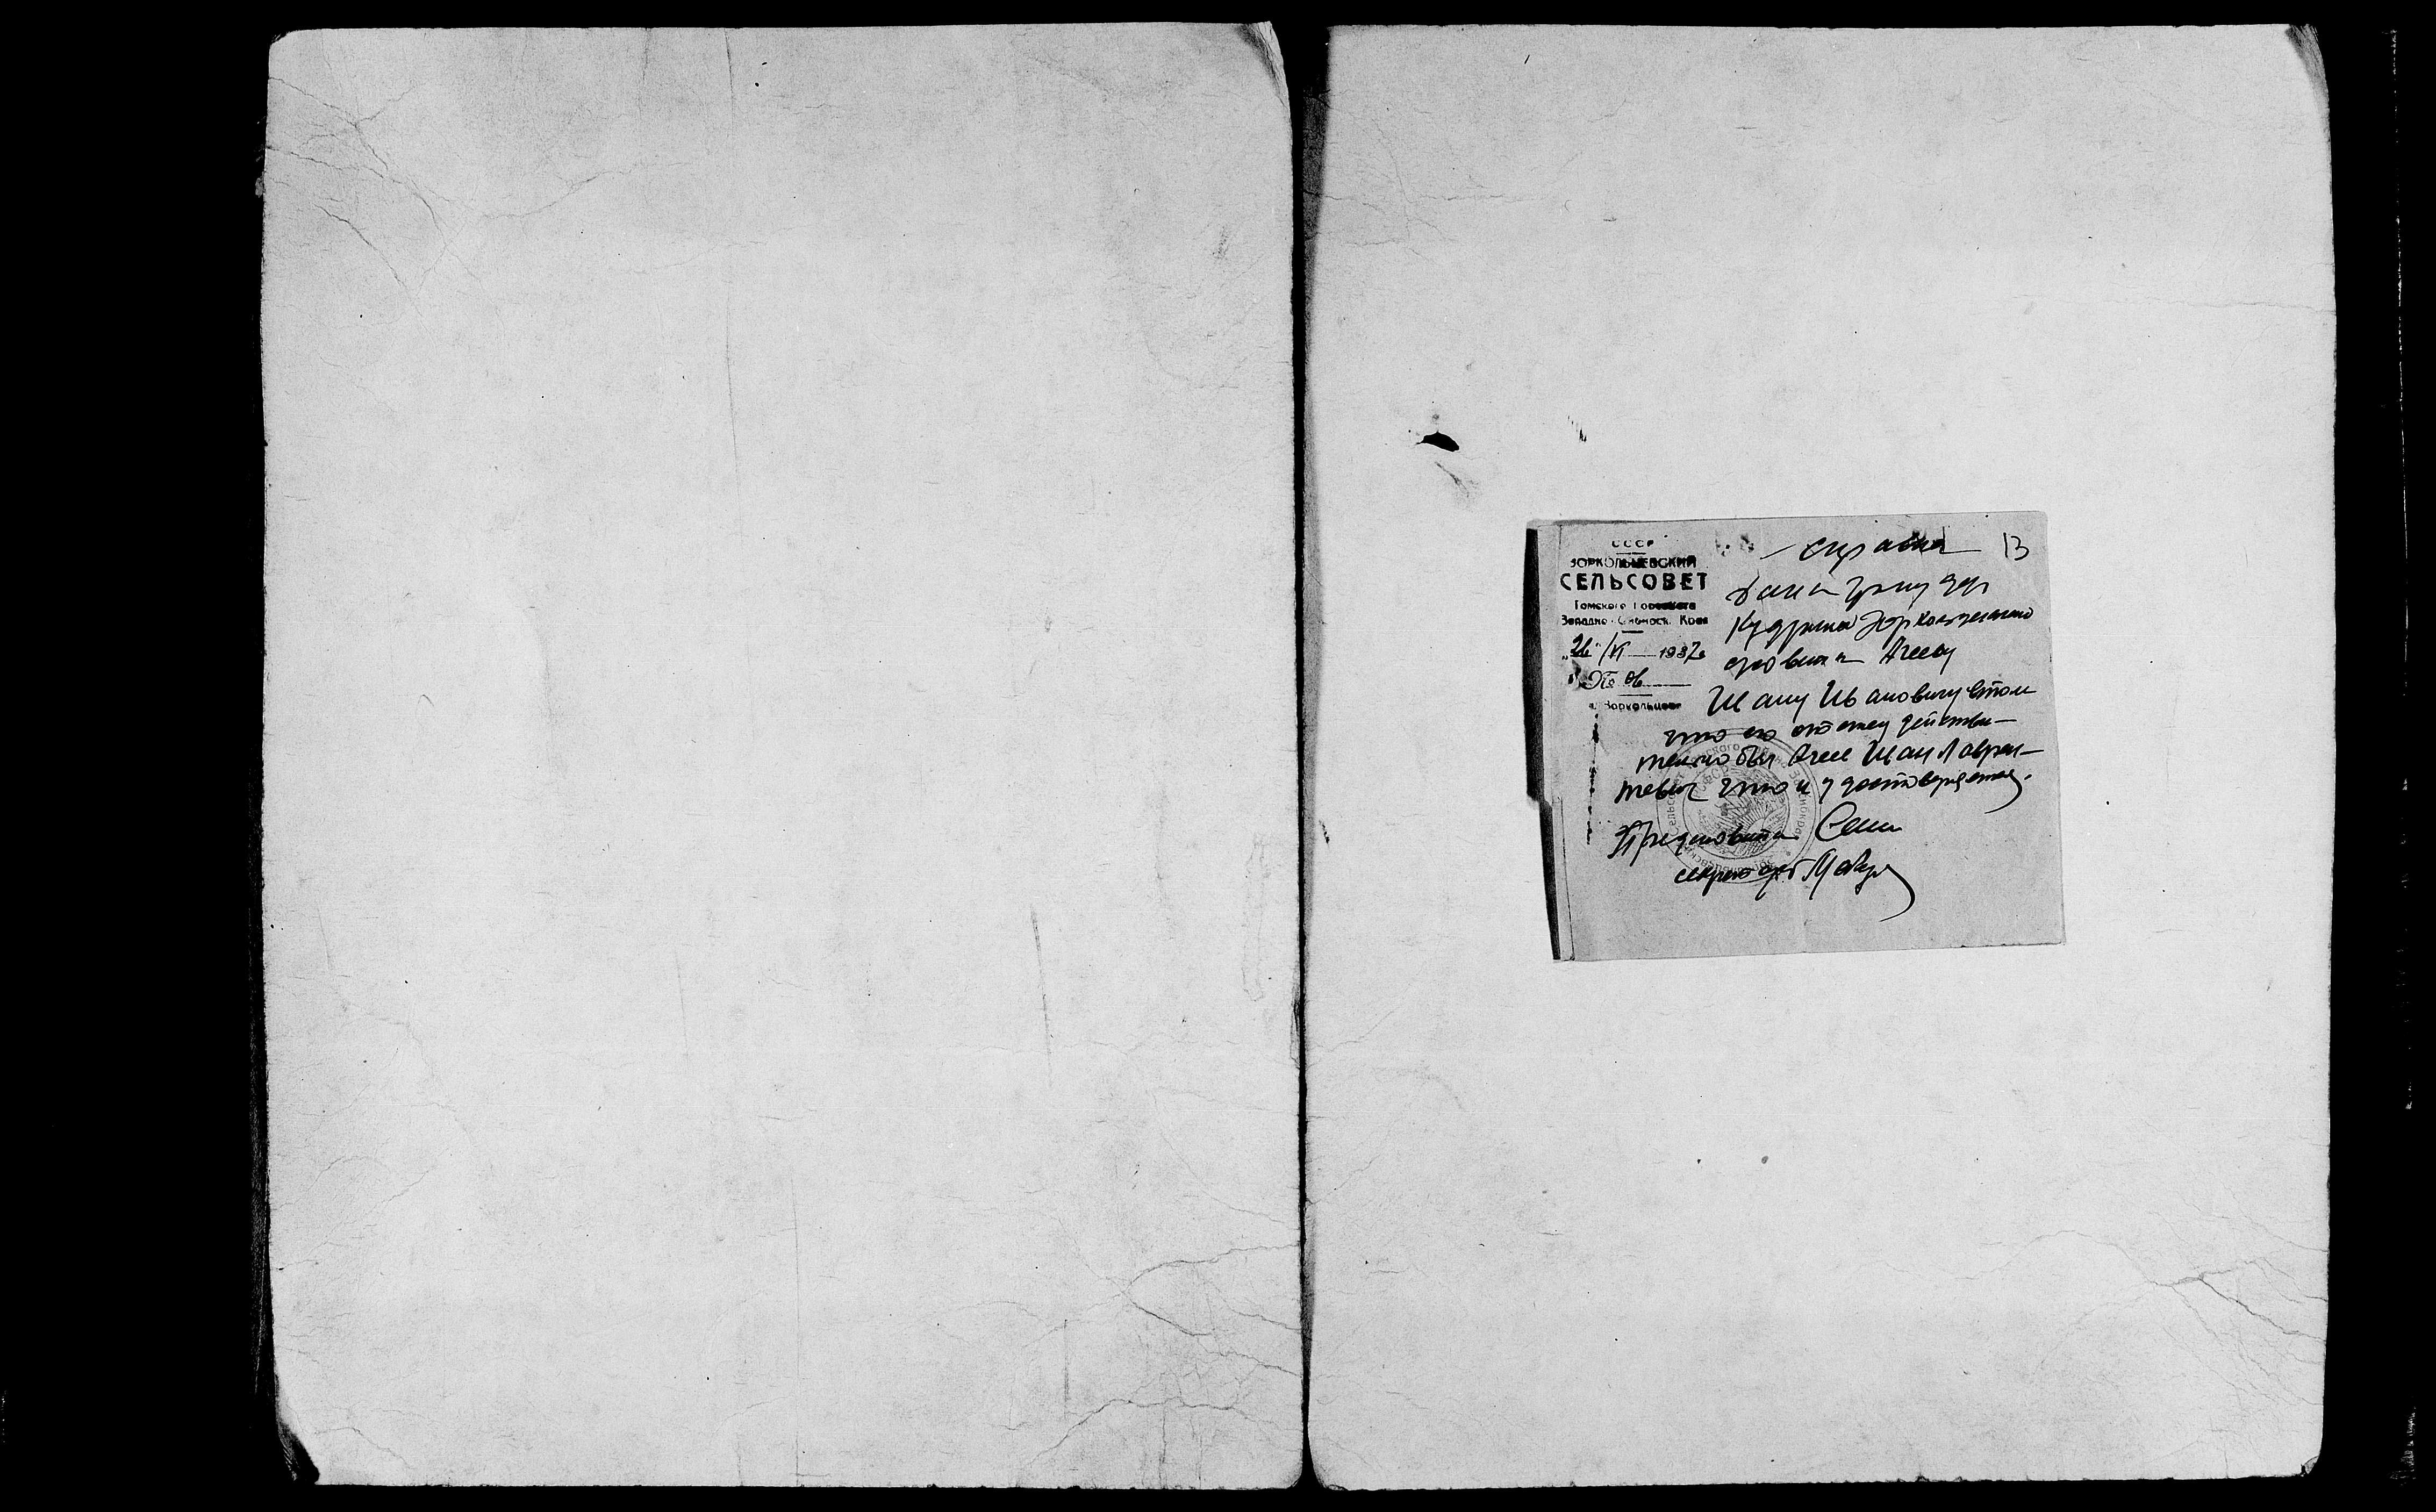 СССР
ЗОРКОЛЬЦЕВСКИЙ
СЕЛЬСОВЕТ
Томского Горсовета
Западно-Сибирск. Края
"26"/VI 1937г
№ 06
с. Зоркольцево
справка 13
Дана гр-ну дер
Кудрина Зоркольцевского
с/совета Агееву
Ивану Ивановичу в том
что его отец действи-
тельно был Агеев Иван Лаврен-
тевич что и удостоверяется.
Предсовета
секретарь